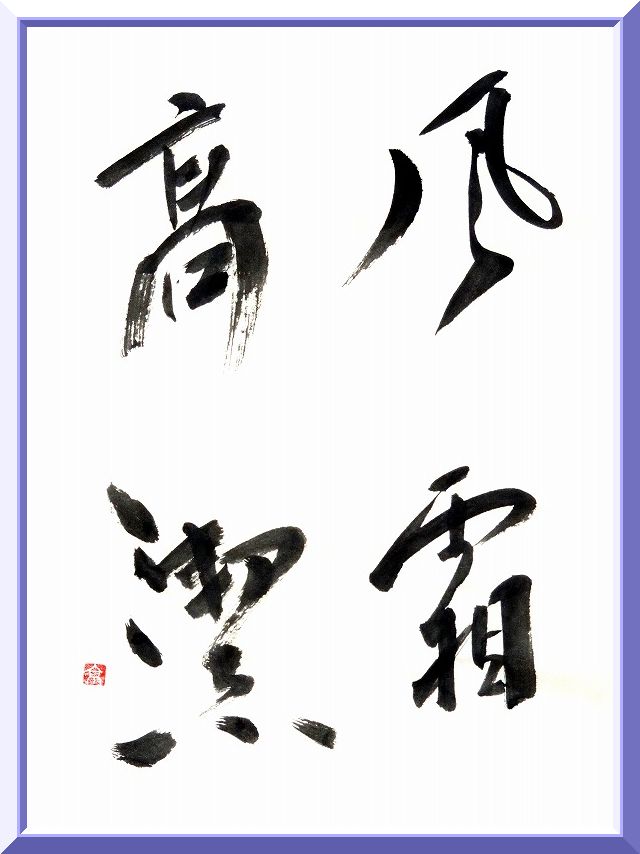 風霜
高潔